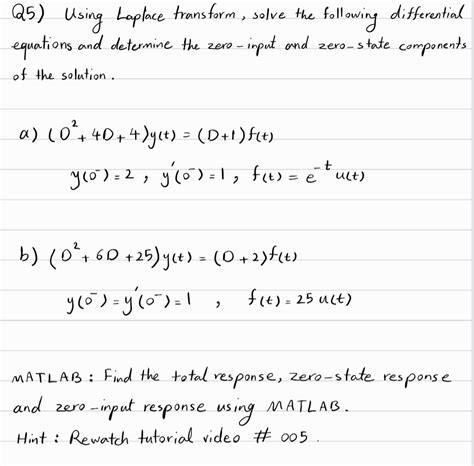 Q5) Using Laplace transform, solve the following differential
equations and determine the zero-input and zero-state components
of the solution.
a) (D² + 4D + 4)y(t) = (D+1)f(t)
y(0⁻) = 2 , y′(0⁻) = 1 , f(t) = e⁻ᵗ u(t)
b) (D² + 6D + 25)y(t) = (D + 2)f(t)
y(0⁻) = y′(0⁻) = 1 , f(t) = 25 u(t)
MATLAB : Find the total response, zero-state response
and zero-input response using MATLAB.
Hint : Rewatch tutorial video # 005.